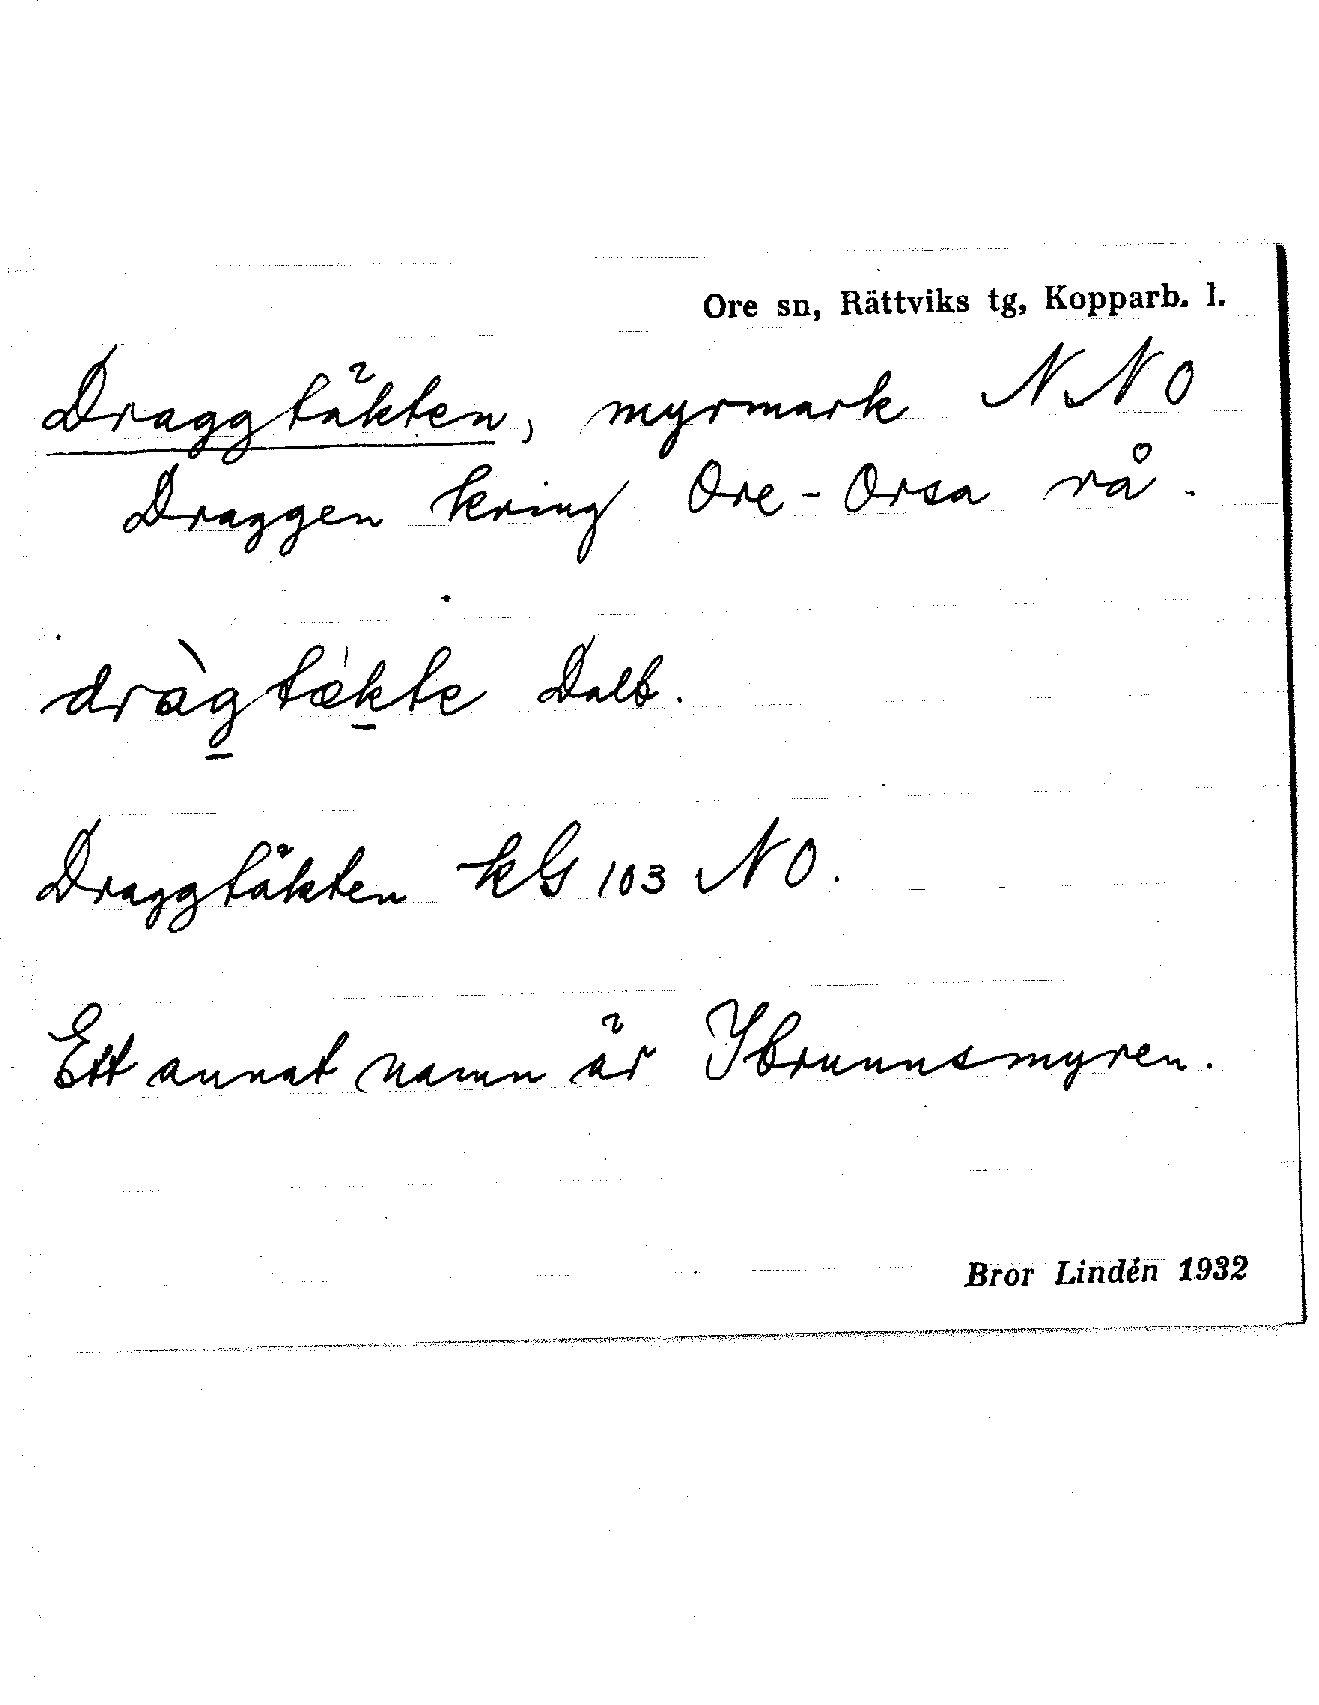 Ore sn, Rättviks tg, Kopparb. l.
Draggtäkten, myrmark NNO
Draggen kring Ore-Orsa rå.
dràg̲tæ̀k̲te Dalb.
Draggtäkten kG 103 NO.
Ett annat namn är Ybrunnsmyren.
Bror Lindén 1932